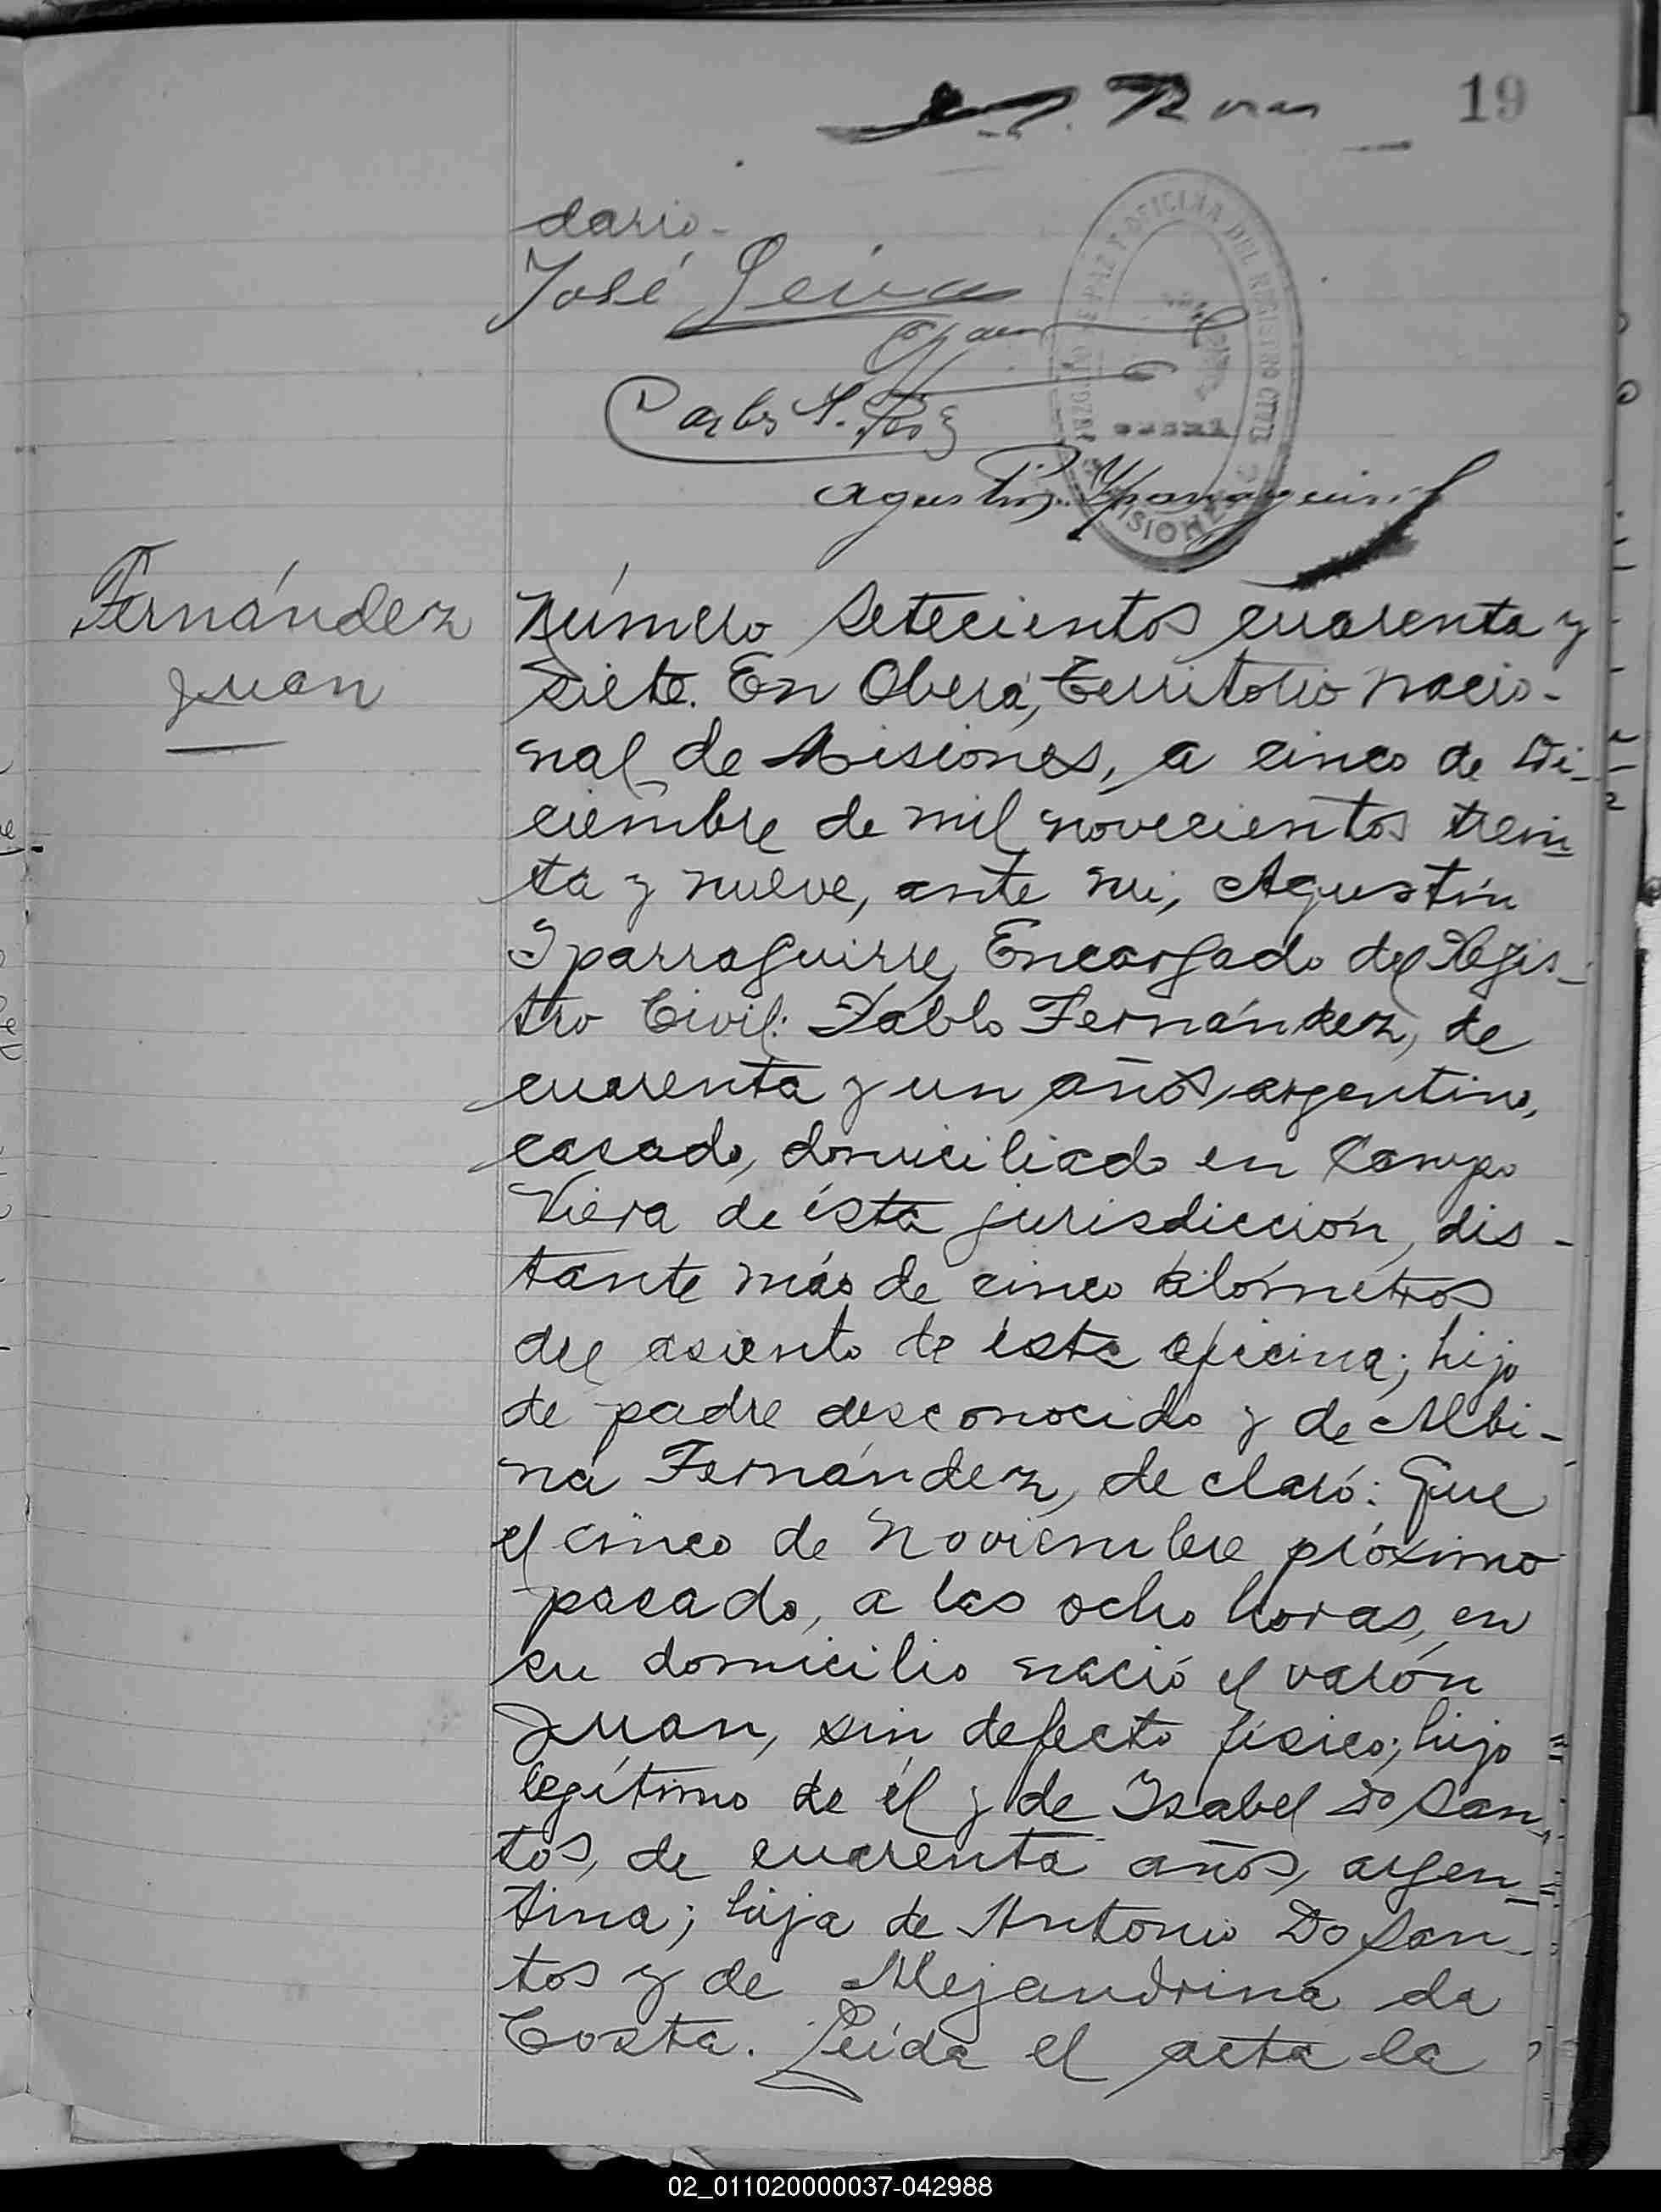 19
dario.
José Leiva
JUZGADO DE PAZ Y OFICINA DEL REGISTRO CIVIL
OBERÁ
MISIONES
Carlos
Agustín Yparraguirre
Fernández
Juan
Número setecientos cuarenta y
siete. En Oberá, Territorio nacio-
nal de Misiones, a cinco de Di-
ciembre de mil novecientos trein-
ta y nueve, ante mi, Agustín
Yparraguirre, Encargado del Regis-
tro Civil: Pablo Fernández, de
cuarenta y un años, argentino,
casado, domiciliado en Campo
Viera de ésta jurisdicción, dis-
tante más de cinco kilómetros
del asiento de ésta oficina; hijo
de padre desconocido y de Albi-
na Fernández, declaró: Que
el cinco de Noviembre próximo
pasado, a las ocho horas, en
su domicilio nació el varón
Juan, sin defecto físico; hijo
legítimo de él y de Isabel Do San-
tos, de cuarenta años, argen-
tina; hija de Antonio Do San-
tos y de Alejandrina da
Costa. Leída el acta la
02_011020000037-042988